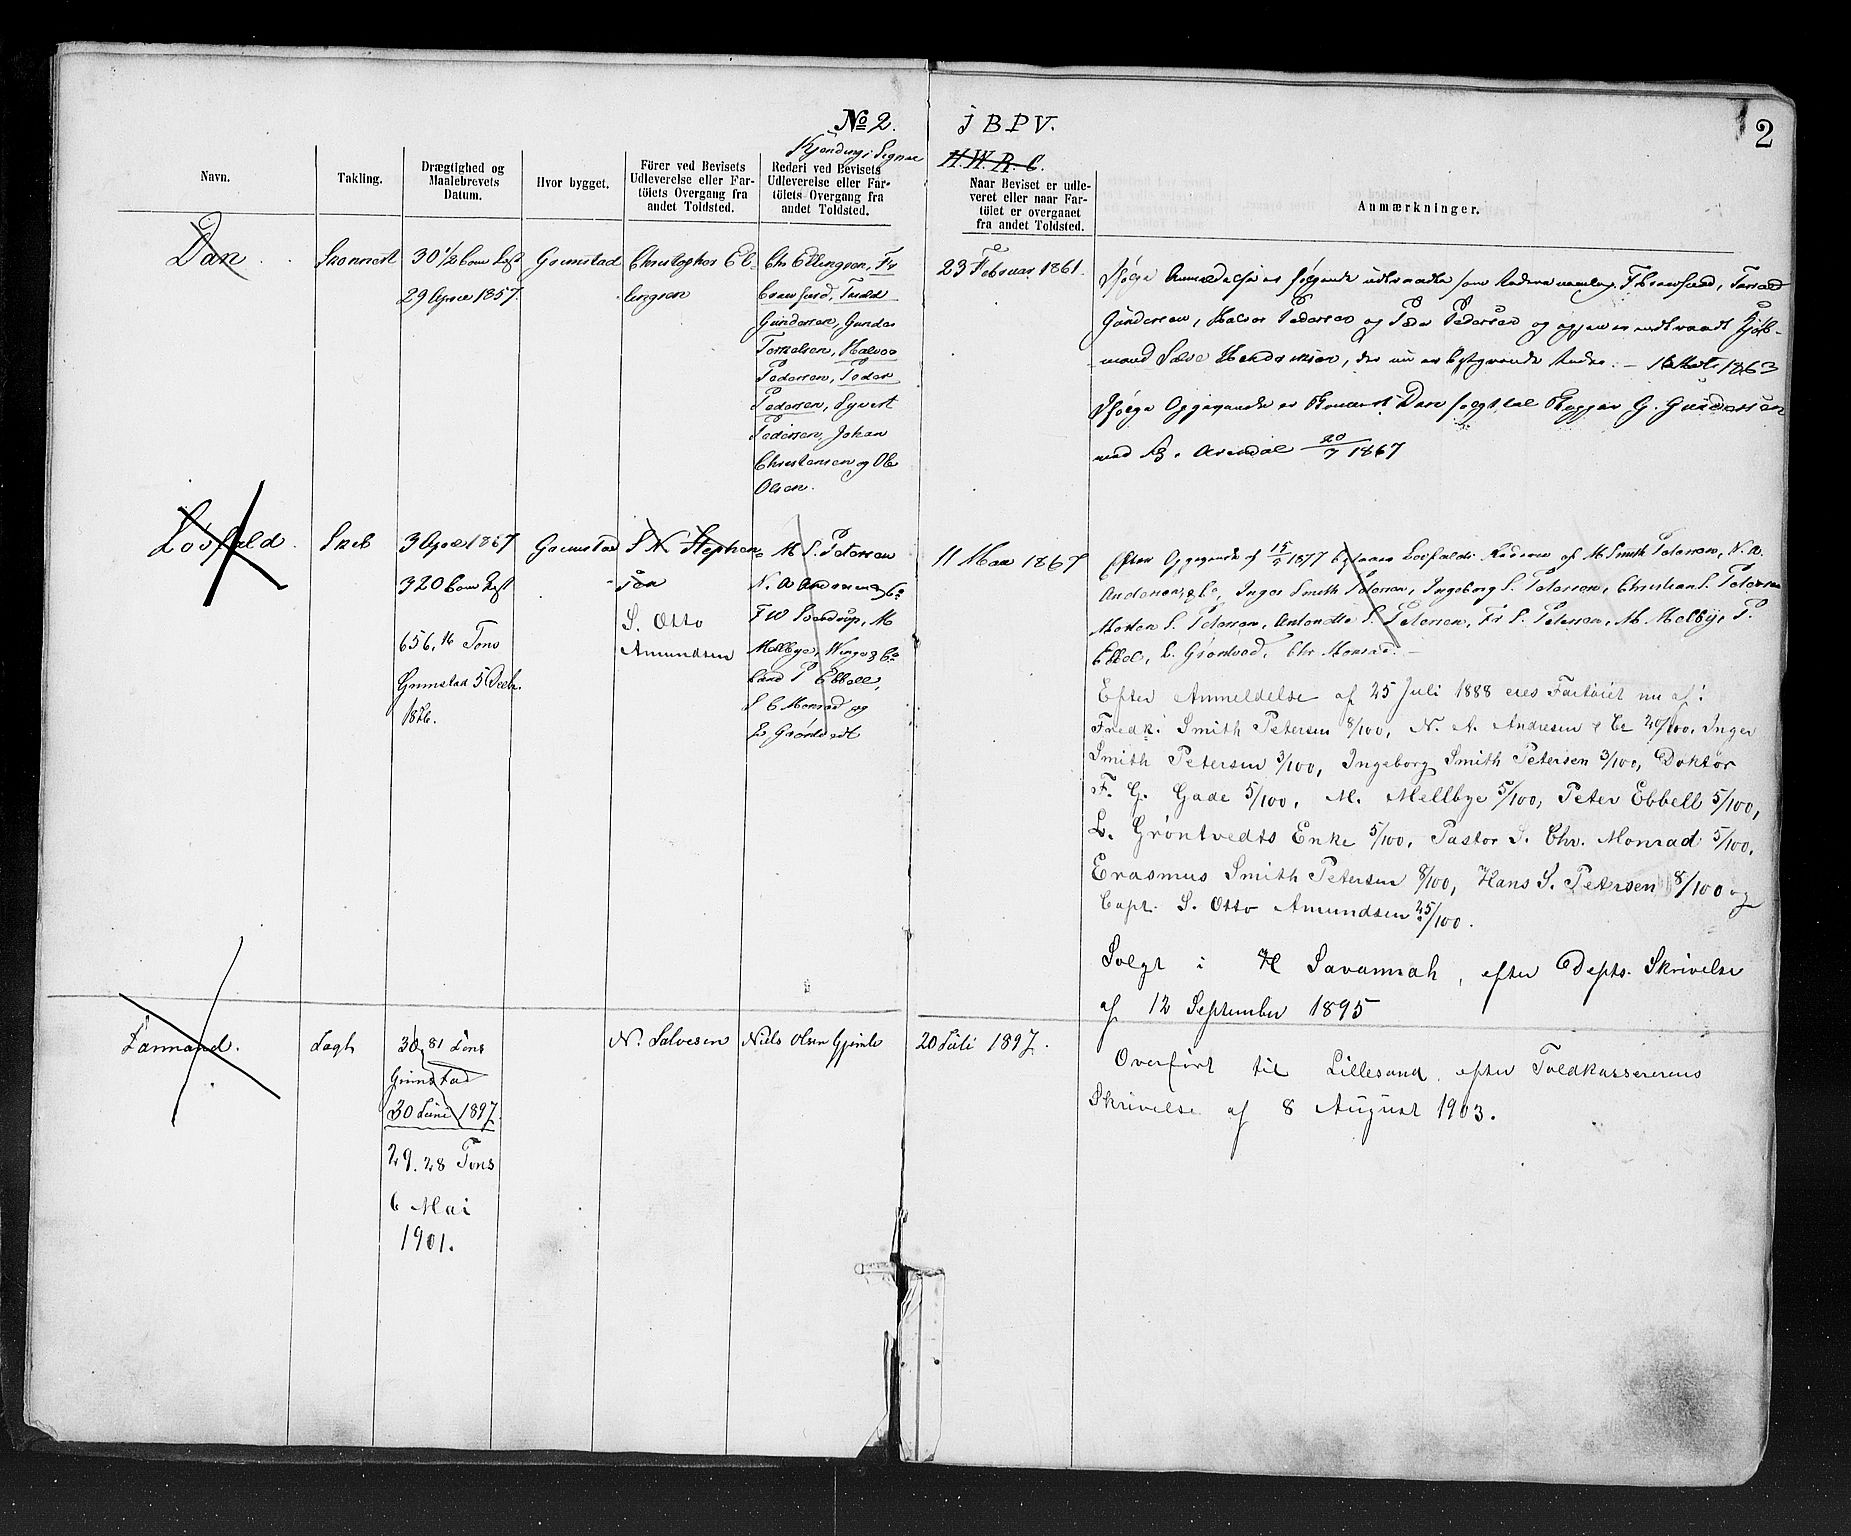 No 2.
J B P V.
2
Kjendings Signal
H. W. R. C.
Navn.
Takling.
Drægtighed og
Maalebrevets
Datum.
Hvor bygget.
Förer ved Bevisets
Udleverelse eller Far-
töiets Overgang fra
andet Toldsted.
Rederi ved Bevisets
Udleverelse eller Far-
töiets Overgang fra
andet Toldsted.
Naar Beviset er udle-
veret eller naar Far-
töiet er overgaaet
fra andet Toldsted.
Anmærkninger.
Dan
Skonnert
30 1/2 Com Lest
29 April 1857.
Grimstad
Christopher El-
lingsen
Chr Ellingsen, Fr
Crawfurd, Tarald
Gundersen, Gunder
Terkelsen, Halvor
Pedersen, Peder
Pedersen, Syvert
Pedersen, Johan
Christensen og Ole
Olsen.
23 Februar 1861.
Ifølge Anmeldelse er følgende udtraadte som Redere nemlig F Crawfurd, Tarald
Gundersen, Halvor Pedersen og Peder Pedersen og igjen er indtraadt Kjøb-
mand Salve Henderiksen, der nu er bestyrende Reder. 1863
Ifølge Opgivende er Skonnert Dan solgt til Skipper G. Gundersen
ved Arendal 20/7 1867
Løvfald
Skib
3 April 1867
320 Com Lest
656,16 Tons
Grimstad 5 Decbr.
1876.
Grimstad
S N Stephan-
sen
S. Otto
Amundsen
M. S. Petersen
N. A Andresen & Co
F W Sverdrup, M
Mellbye, Winge & Co
P Ebbell,
S C Monrad og
L Grøntvedt
11 Mai 1867
Efter Opgivende af 15/5 1877 bestaar Løvfalds Rederi af M. Smith Petersen, N. A.
Andresen & Co, Inger Smith Petersen, Ingeborg S. Petersen, Christian S. Petersen
Morten S. Petersen, Antonette S. Petersen, Fr S. Petersen, M. Melbye, P.
Ebbel, L. Grøntved, Chr Monrad. –
Efter Anmeldelse af 25 Juli 1888 eies Fartøiet nu af:
Fredk. Smith Petersen 8/100, N. A. Andresen & Co 20/100, Inger
Smith Petersen 3/100, Ingeborg Smith Petersen 3/100, Doktor
F. G. Gade 5/100, M. Mellbye 5/100, Peter Ebbell 5/100,
L. Grøntvedts Enke 5/100, Pastor S. Chr. Monrad 5/100,
Erasmus Smith Petersen 8/100, Hans S. Petersen 8/100 og
Capt. S. Otto Amundsen 25/100.
Solgt i Savannah, efter Depts. Skrivelse
af 12 September 1895
Farmand.
Jagt
30,81 Tons
Grimstad
30 Juni 1897.
29.28 Tons
6 Mai
1901.
N. Salvesen
Niels Olsen Gjømle
20 Juli 1897.
Overført til Lillesand efter Toldkassererens
Skrivelse af 8 August 1903.